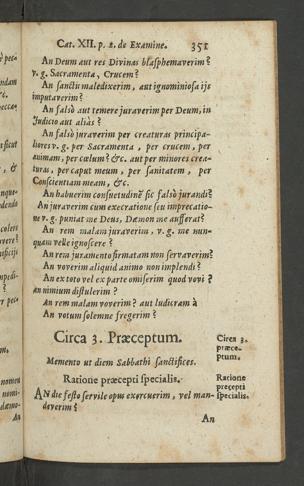 Cat. XII. p. 2. de Examine. 351
An Deum aut res Divinas blasphemaverim?
v. g. Sacramenta, Crucem?
An sanctis maledixerim, aut ignominiosa ijs
imputaverim?
An falsò aut temere juraverim per Deum, in
Judicio aut aliàs?
An falsò juraverim per creaturas principa-
liores v. g. per Sacramenta, per crucem, per
animam, per cœlum? &c. aut per minores crea-
turas, per caput meum, per sanitatem, per
Conscientiam meam, &c.
An habuerim consuetudinẽ sic falsò jurandi?
An juraverim cum execratione seu imprecatio-
ne v. g. puniat me Deus, Dæmon me aufferat?
An rem malam juraverim, v. g. me nun-
quam velle ignoscere?
An rem juramento firmatam non servaverim?
An voverim aliquid animo non implendi?
An ex toto vel ex parte omiserim quod vovi?
An nimium distulerim?
An rem malam voverim? aut ludicram à
An votum solemne fregerim?
Circa 3. Præceptum.
Circa 3.
præce-
ptum.
Memento ut diem Sabbathi sanctifices.
Ratione præcepti specialis.
Ratione
præcepti
specialis.
AN die festo servile opus exercuerim, vel man-
daverim?
An